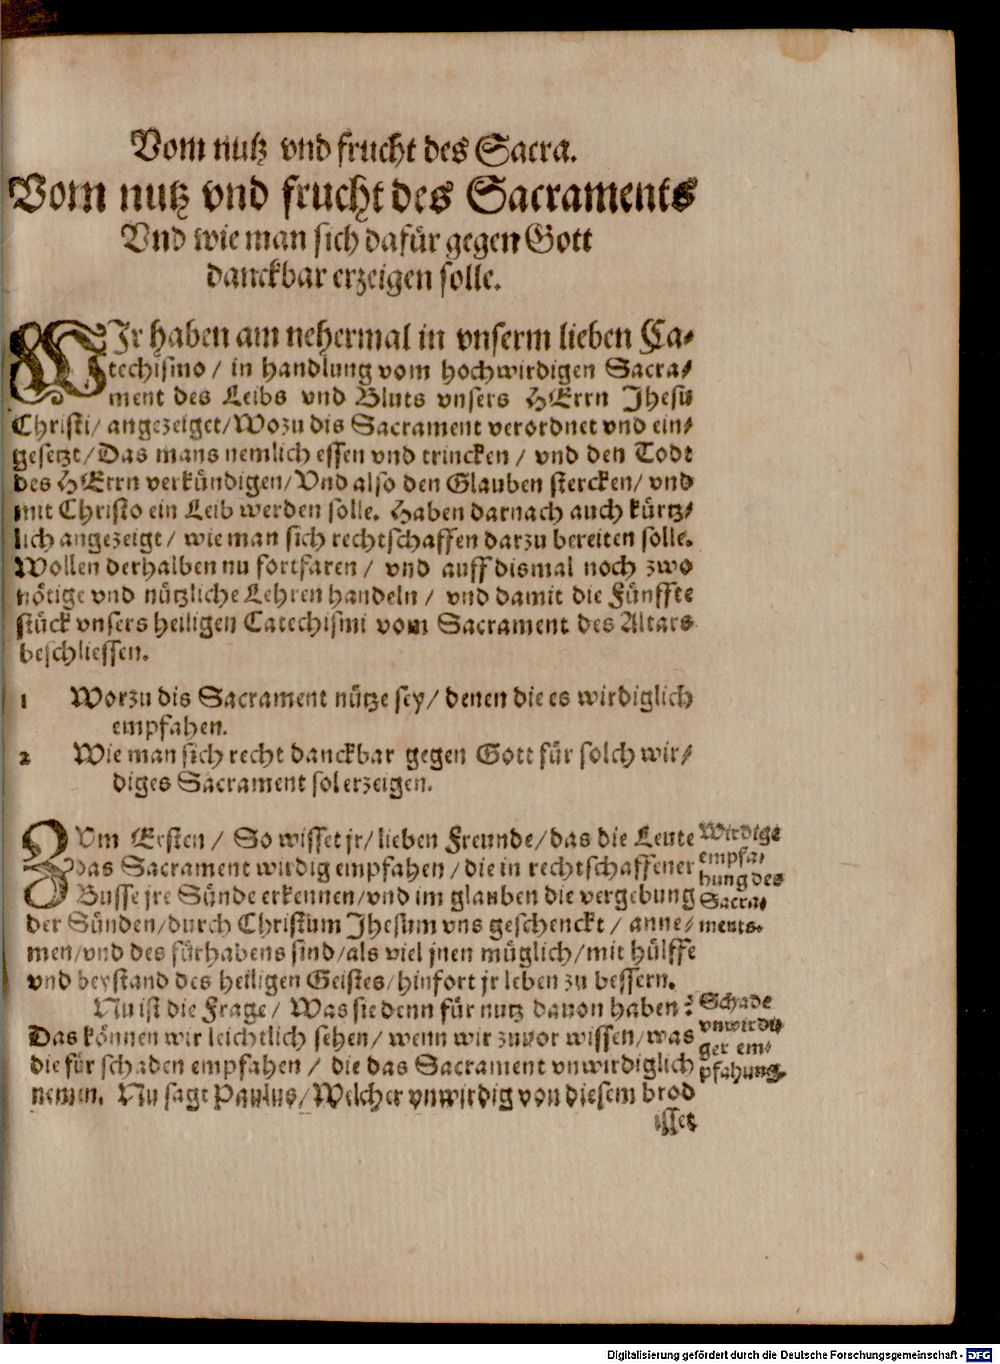 Vom nutz vnd frucht des Sacra.
Vom nutz vnd frucht des Sacraments
Vnd wie man sich dafür gegen Gott
danckbar erzeigen solle.
WIr haben am nehermal in vnserm lieben Ca⸗
techismo / in handlung vom hochwirdigen Sacra⸗
ment des Leibs vnd Bluts vnsers HErrn Jhesu
Christi/ angezeiget/Wozu dis Sacrament verordnet vnd ein⸗
gesetzt/Das mans nemlich essen vnd trincken / vnd den Todt
des HErrn verkündigen/Vnd also den Glauben stercken/ vnd
mit Christo ein Leib werden solle. Haben darnach auch kürtz⸗
lich angezeigt/ wie man sich rechtschaffen darzu bereiten solle.
Wollen derhalben nu fortfaren / vnd auff dismal noch zwo
nötige vnd nützliche Lehren handeln / vnd damit die Fünffte
stück vnsers heiligen Catechismi vom Sacrament des Altars
beschliessen.
1 Worzu dis Sacrament nütze sey/ denen die es wirdiglich
empfahen.
2 Wie man sich recht danckbar gegen Gott für solch wir⸗
diges Sacrament sol erzeigen.
ZVm Ersten / So wisset jr/ lieben Freunde/das die Leute
das Sacrament wirdig empfahen /die in rechtschaffener
Busse jre Sünde erkennen/vnd im glauben die vergebung
der Sünden/durch Christum Jhesum vns geschenckt / anne⸗
men/vnd des fürhabens sind/als viel jnen müglich/mit hülffe
vnd beystand des heiligen Geistes/hinfort jr leben zu bessern.
Wirdige
empfa⸗
hung des
Sacra⸗
ments.
Nu ist die Frage/ Was sie denn für nutz dauon haben?
Das können wir leichtlich sehen/ wenn wir zuuor wissen/was
die für schaden empfahen / die das Sacrament vnwirdiglich
nemen. Nu sagt Paulus/Welcher vnwirdig von diesem brod
Schade
vnwirdi⸗
ger em⸗
pfahung.
isset